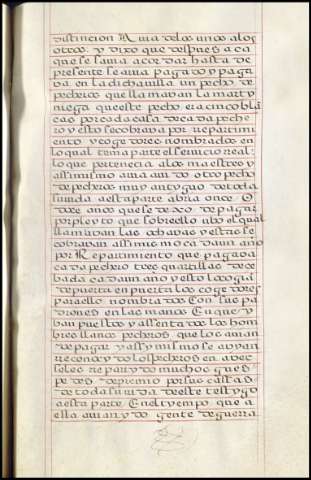 distincion Avia delos unos alos
otros. y dixo que despues aca
que se savia acordar hasta de
presente se avia pagado y paga
va en la dicha villa un pecho de
pecheros que llamavan la marty
niega que este pecho era cinco blā
cas por cada casa de cada peche
ro y esto se cobrava por repartimi
ento y cogedores nombrados en
lo qual tenia parte el servicio real
lo que pertenecia alos maestres y
assimismo avia avido otro pecho
de pecheros muy antyguo de toda
su vida a esta parte abria onze O
doze años que se dexo de pagar
por pleyto que sobre ello ubo el qual
llamavan las ochavas y este se
cobravan assimismo cada un año
por Repartimiento que pagava
cada pechero tres quartillas de ce
bada cada un año y esto lo cogiā
de puerta en puerta los cogedores
para ello nombrados Con sus pa
drones en las manos En que y
ban puestos y assentados los hom
bres llanos pecheros que lo avian
de pagar y assymismo se avyan
recono ydo los pecheros en averse
les repartydo muchos guespe
des de premio por sus casas
de toda su vida de este testygo
a esta parte En el tyempo que a
ella avian ydo gente de guerra